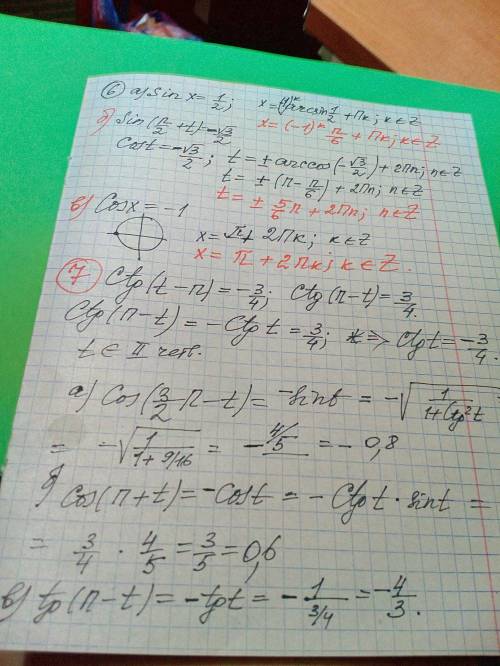 6 a) Sin x = 1/2; x = (-1)^k arcsin 1/2 + πk; k∈Z
x = (-1)^k π/6 + πk; k∈Z
б) Sin(π/2 + t) = -√3/2
Cos t = -√3/2; t = ± arccos(-√3/2) + 2πn; n∈Z
t = ± (π - π/6) + 2πn; n∈Z
t = ± 5/6 π + 2πn; n∈Z
в) Cos x = -1
x = π + 2πk; k∈Z
x = π + 2πk; k∈Z.
7 Ctg(t-π) = -3/4; Ctg(π-t) = 3/4.
Ctg(π-t) = -Ctg t = 3/4; => Ctg t = -3/4
t ∈ II четв.
а) Cos(3/2 π - t) = -sin t = -√(1/(1+Ctg²t
= -√(1/(1+9/16)) = -4/5 = -0,8
б) Cos(π+t) = -Cos t = -Ctg t · sin t =
= 3/4 · 4/5 = 3/5 = 0,6
в) tg(π-t) = -tg t = -1/(3/4) = -4/3.